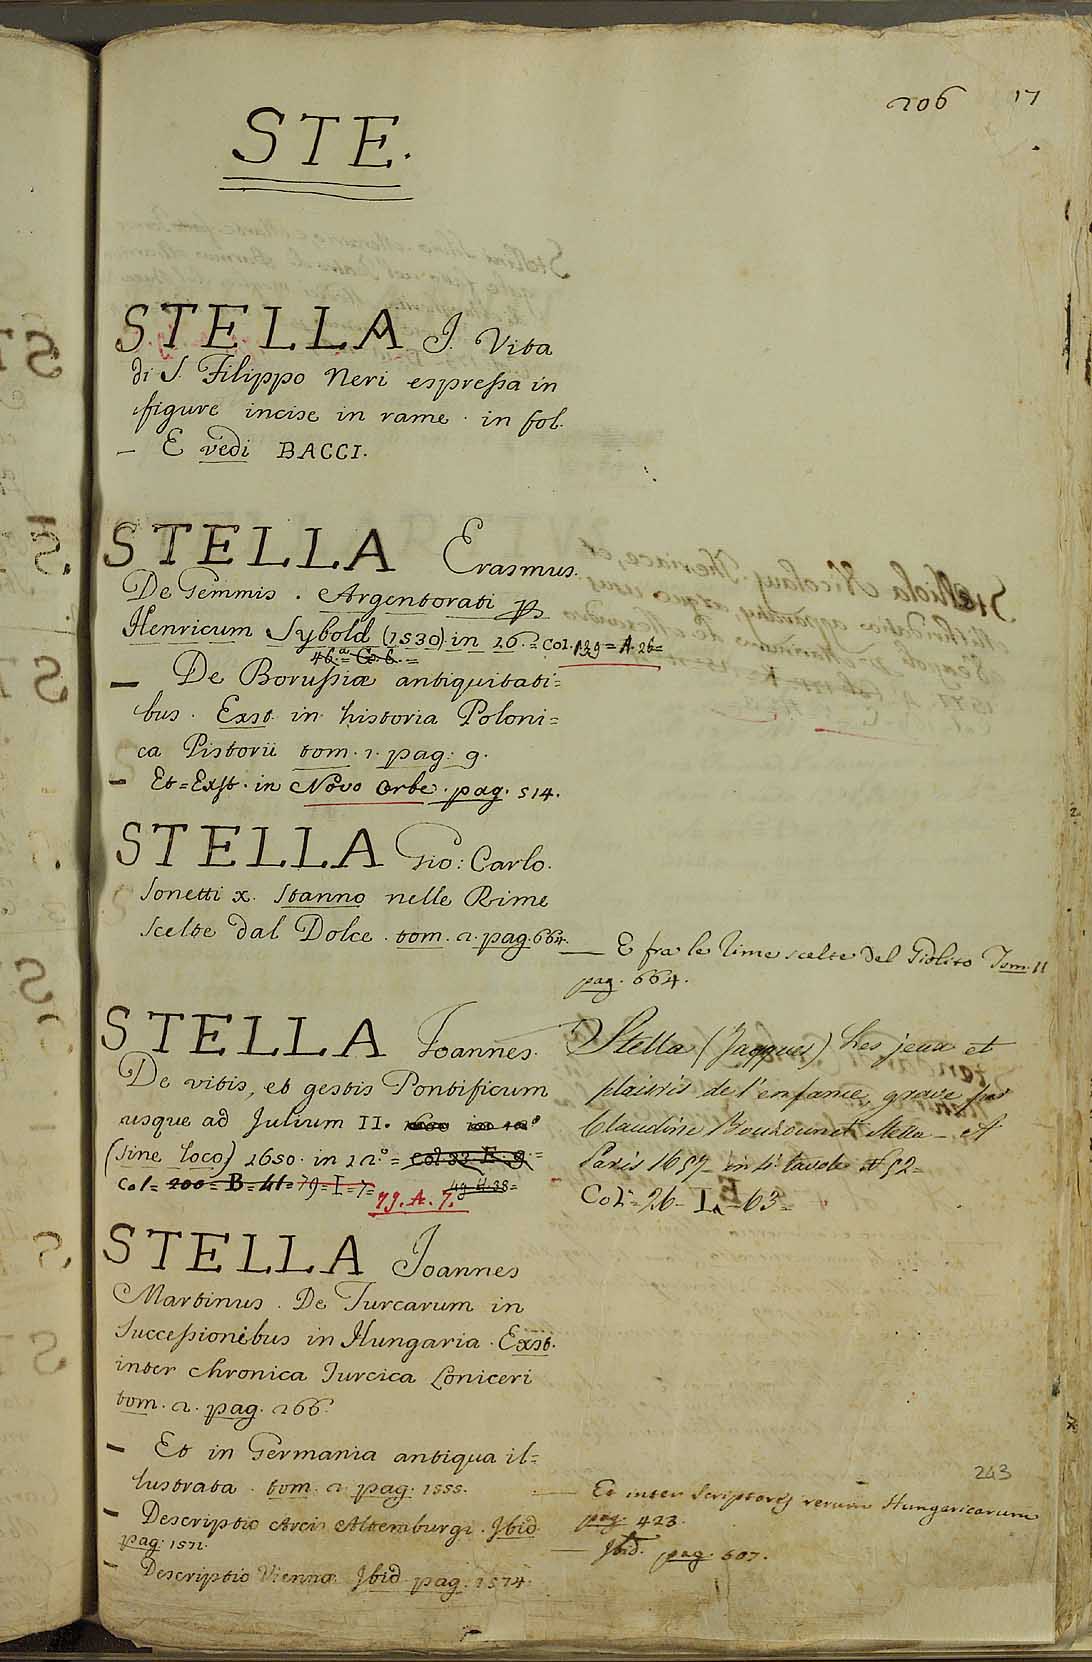 206 17
STE.
STELLA J. Vita
di S. Filippo Neri espressa in
figure incise in rame. in fol.
— E vedi BACCI.
STELLA Erasmus.
De Gemmis. Argentorati p
Henricum Sybold (1530) in 16.= Col. 129=A.26=
46.a= Co. 6.=
— De Borussiæ antiquitati=
bus. Exst. in historia Poloni=
ca Pistorii tom. 1. pag: 9.
— Et=Exst. in Novo Orbe. pag. 514.
STELLA Gio: Carlo.
Sonetti x. Stanno nelle Rime
scelte dal Dolce. tom. 2. pag. 664.
— E fra le Rime scelte del Giolito Tom. II
pag. 664.
STELLA Joannes.
De vitis, et gestis Pontificum
usque ad Julium II.
(sine loco) 1650. in 12.º= Col 33. E. 9.=
Col= 200= B= 41= 79=I=7=
79. A. 7.
Stella (Jacques) Les jeux et
plaisris de l'enfance, grave par
Claudine Bouzounet Stella — et
Paris 1657 — in 4.º tavole 52=
Col.= 26- I E -63=
STELLA Joannes
Martinus. De Turcarum in
successionibus in Hungaria. Exst.
inter chronica Turcica Loniceri
tom. 2. pag. 266.
— Et in Germania antiqua il=
lustrata. tom. 2 pag. 1555.
— Descriptio Arcis Altemburgi. Ibid
pag: 1572.
— Descriptio Viennæ. Ibid pag. 1574.
243
— Et inter Scriptores rerum Hungaricarum
pag: 423.
— Ibid. pag. 607.